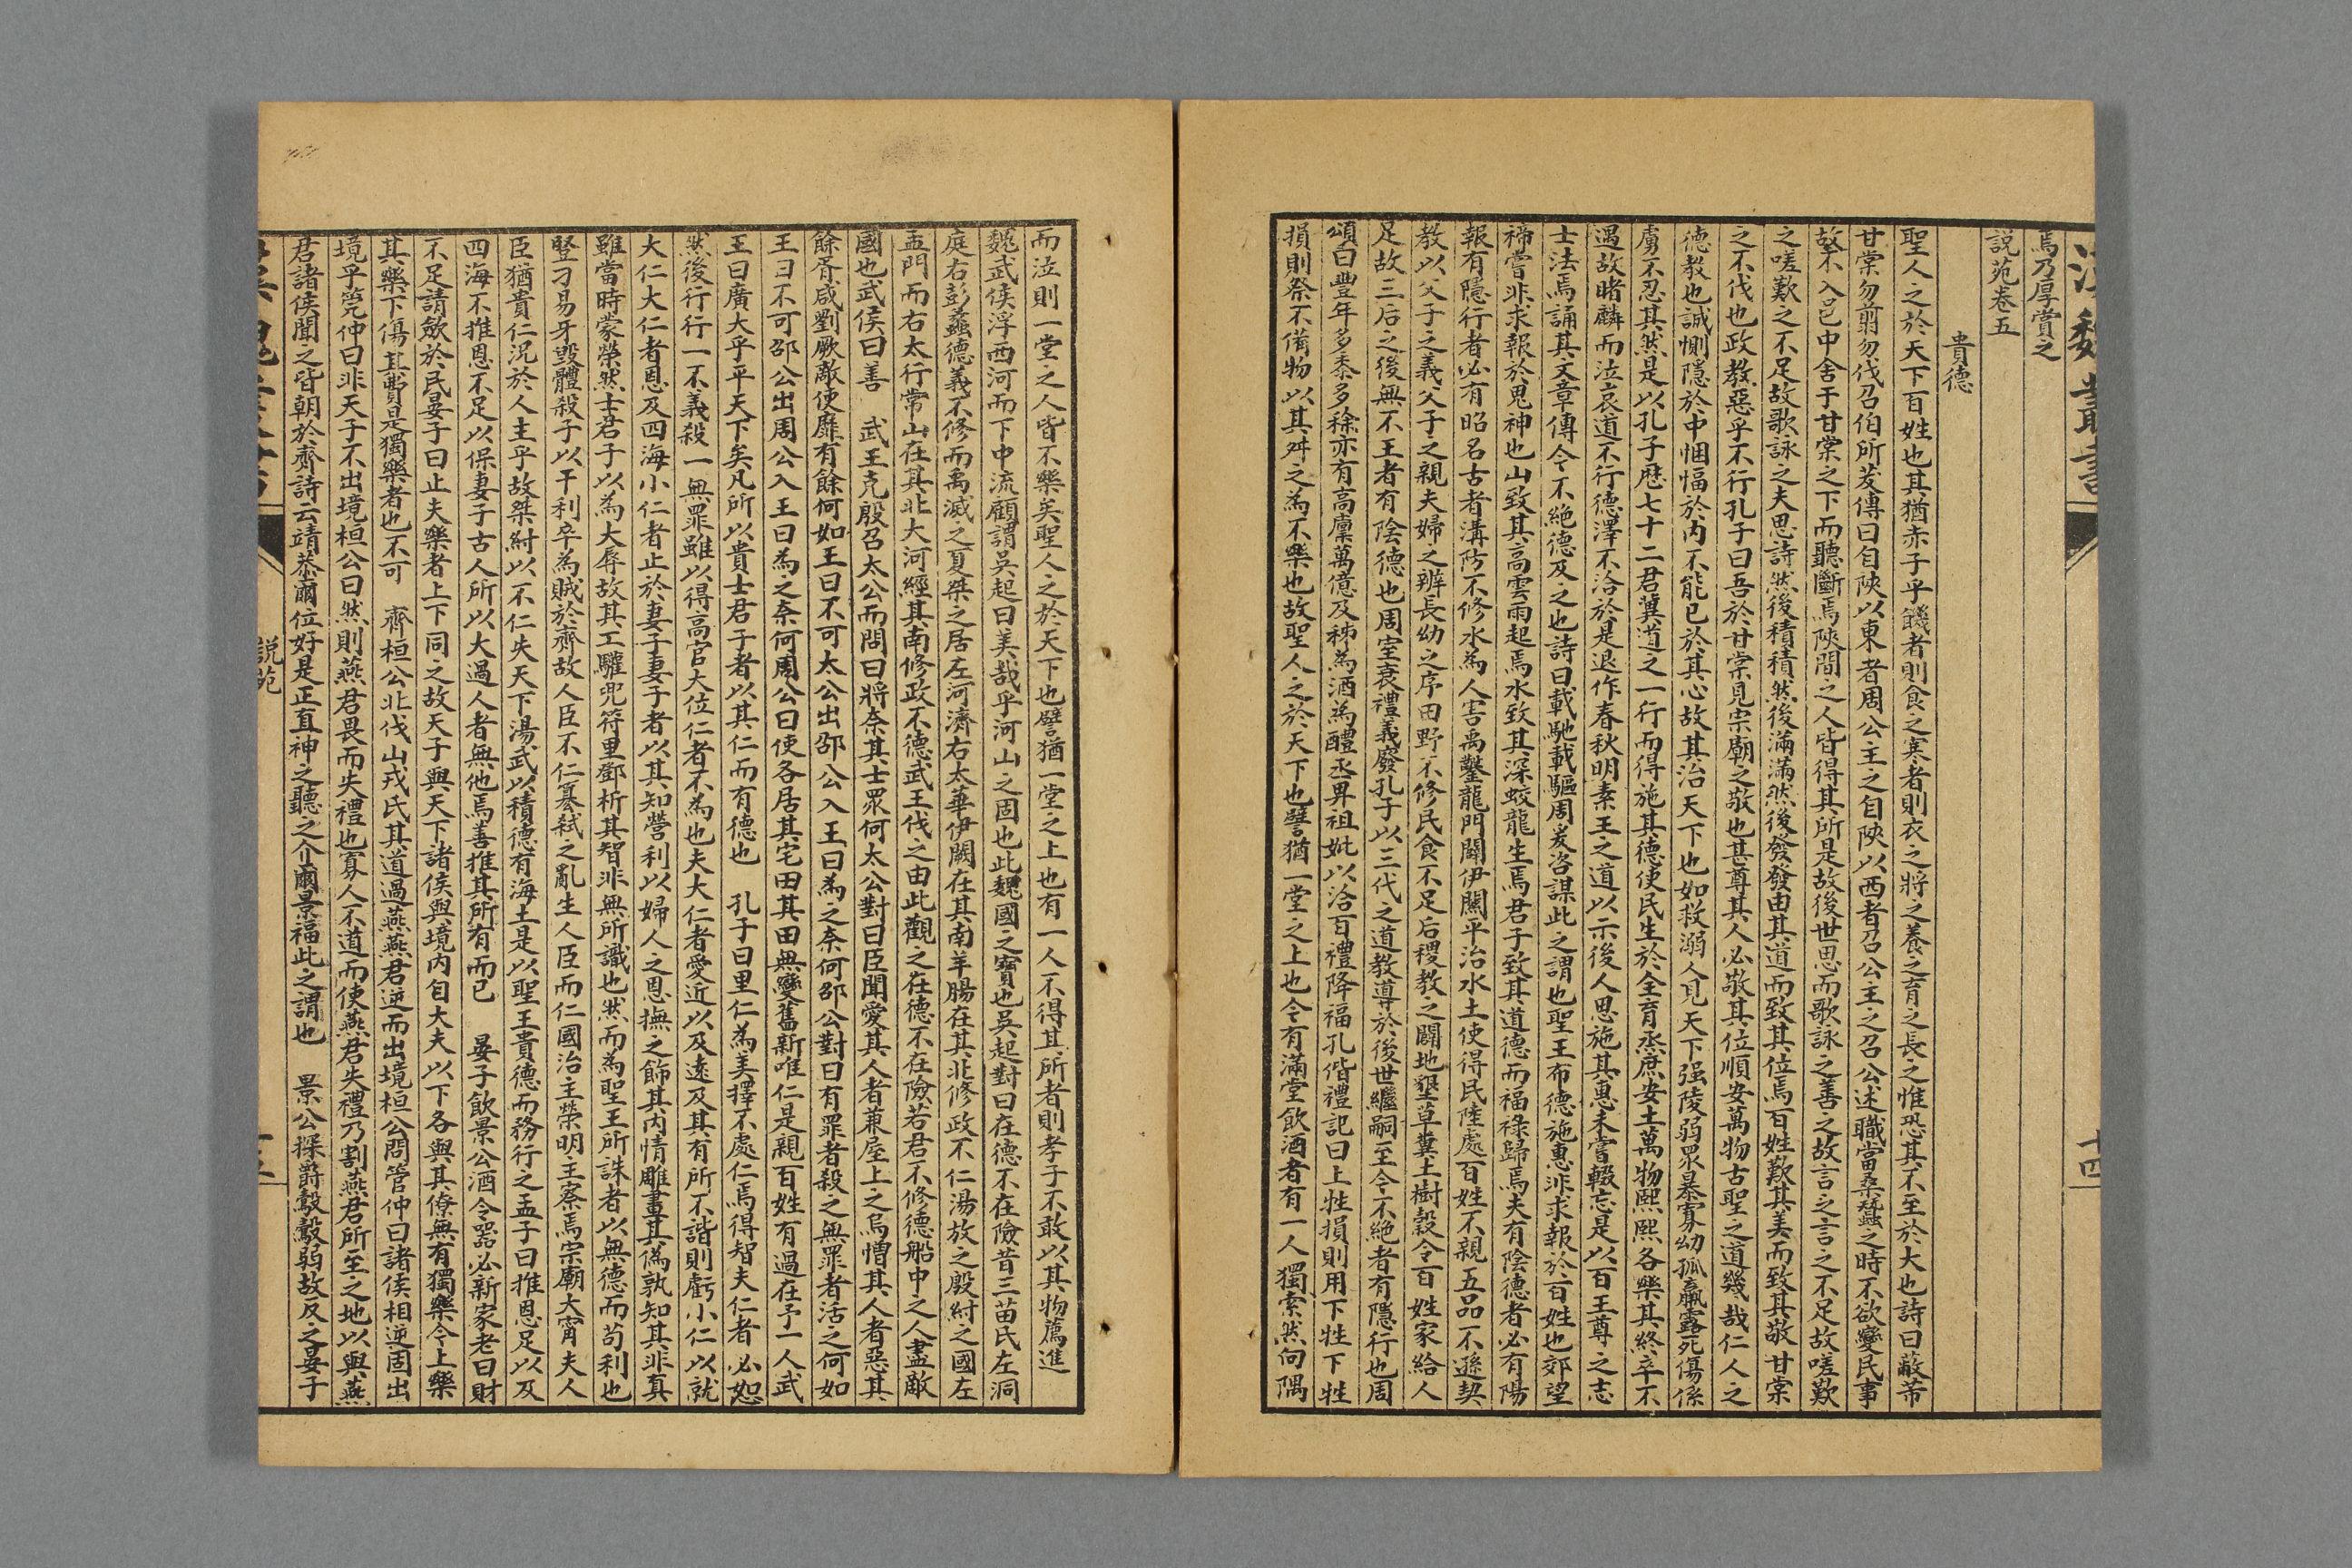 漢魏叢書
十四
焉乃厚賞之
說苑卷五
貴德
聖人之於天下百姓也其猶赤子乎饑者則食之寒者則衣之將之養之育之長之惟恐其不至於大也詩曰蔽芾
甘棠勿翦勿伐召伯所茇傳曰自陝以東者周公主之自陝以西者召公主之召公述職當桑蠶之時不欲變民事
故不入邑中舍于甘棠之下而聽斷焉陝間之人皆得其所是故後世思而歌詠之善之故言之言之不足故嗟歎
之嗟歎之不足故歌詠之夫思詩然後積積然後滿滿然後發發由其道而致其位焉百姓歎其美而致其敬甘棠
之不伐也政教惡乎不行孔子曰吾於甘棠見宗廟之敬也甚尊其人必敬其位順安萬物古聖之道幾哉仁人之
德教也誠惻隱於中悃愊於內不能已於其心故其治天下也如救溺人見天下强陵弱眾暴寡幼孤羸露死傷係
虜不忍其然是以孔子歷七十二君冀道之一行而得施其德使民生於全育烝庶安土萬物熙熙各樂其終卒不
遇故睹麟而泣哀道不行德澤不洽於是退作春秋明素王之道以示後人思施其惠未嘗輟忘是以百王尊之志
士法焉誦其文章傳今不絕德及之也詩曰載馳載驅周爰咨謀此之謂也聖王布德施惠非求報於百姓也郊望
禘嘗非求報於鬼神也山致其高雲雨起焉水致其深蛟龍生焉君子致其道德而福祿歸焉夫有陰德者必有陽
報有隱行者必有昭名古者溝防不修水為人害禹鑿龍門闢伊闕平治水土使得民陸處百姓不親五品不遜契
教以父子之義父子之親夫婦之辨長幼之序田野不修民食不足后稷教之闢地墾草糞土樹穀令百姓家給人
足故三后之後無不王者有陰德也周室衰禮義廢孔子以三代之道教導於後世繼嗣至今不絕者有隱行也周
頌曰豐年多黍多稌亦有高廩萬億及秭為酒為醴烝畀祖妣以洽百禮降福孔偕禮記曰上牲損則用下牲下牲
損則祭不備物以其舛之為不樂也故聖人之於天下也譬猶一堂之上也今有滿堂飲酒者有一人獨索然向隅
而泣則一堂之人皆不樂矣聖人之於天下也譬猶一堂之上也有一人不得其所者則孝子不敢以其物薦進
魏武侯浮西河而下中流顧謂吳起曰美哉乎河山之固也此魏國之寶也吳起對曰在德不在險昔三苗氏左洞
庭右彭蠡德義不修而禹滅之夏桀之居左河濟右太華伊闕在其南羊腸在其北修政不仁湯放之殷紂之國左
孟門而右太行常山在其北大河經其南修政不德武王伐之由此觀之在德不在險若君不修德船中之人盡敵
國也武侯曰善　武王克殷召太公而問曰將奈其士眾何太公對曰臣聞愛其人者兼屋上之烏憎其人者惡其
餘胥咸劉厥敵使靡有餘何如王曰不可太公出邵公入王曰為之奈何邵公對曰有罪者殺之無罪者活之何如
王曰不可邵公出周公入王曰為之奈何周公曰使各居其宅田其田無變舊新唯仁是親百姓有過在予一人武
王曰廣大乎平天下矣凡所以貴士君子者以其仁而有德也　孔子曰里仁為美擇不處仁焉得智夫仁者必恕
然後行行一不義殺一無罪雖以得高官大位仁者不為也夫大仁者愛近以及遠及其有所不諧則虧小仁以就
大仁大仁者恩及四海小仁者止於妻子妻子者以其知營利以婦人之恩撫之飾其內情雕畫其偽孰知其非真
雖當時蒙榮然士君子以為大辱故其工驩兜符里鄧析其智非無所識也然而為聖王所誅者以無德而苟利也
豎刁易牙毀體殺子以干利卒為賊於齊故人臣不仁篡弒之亂生人臣而仁國治主榮明王察焉宗廟大甯夫人
臣猶貴仁況於人主乎故桀紂以不仁失天下湯武以積德有海土是以聖王貴德而務行之孟子曰推恩足以及
四海不推恩不足以保妻子古人所以大過人者無他焉善推其所有而已　晏子飲景公酒令器必新家老曰財
不足請斂於民晏子曰止夫樂者上下同之故天子與天下諸侯與境內自大夫以下各與其僚無有獨樂今上樂
其樂下傷其費是獨樂者也不可　齊桓公北伐山戎氏其道過燕燕君逆而出境桓公問管仲曰諸侯相逆固出
境乎筦仲曰非天子不出境桓公曰然則燕君畏而失禮也寡人不道而使燕君失禮乃割燕君所至之地以與燕
君諸侯聞之皆朝於齊詩云靖恭爾位好是正直神之聽之介爾景福此之謂也　景公探爵鷇鷇弱故反之晏子
說苑